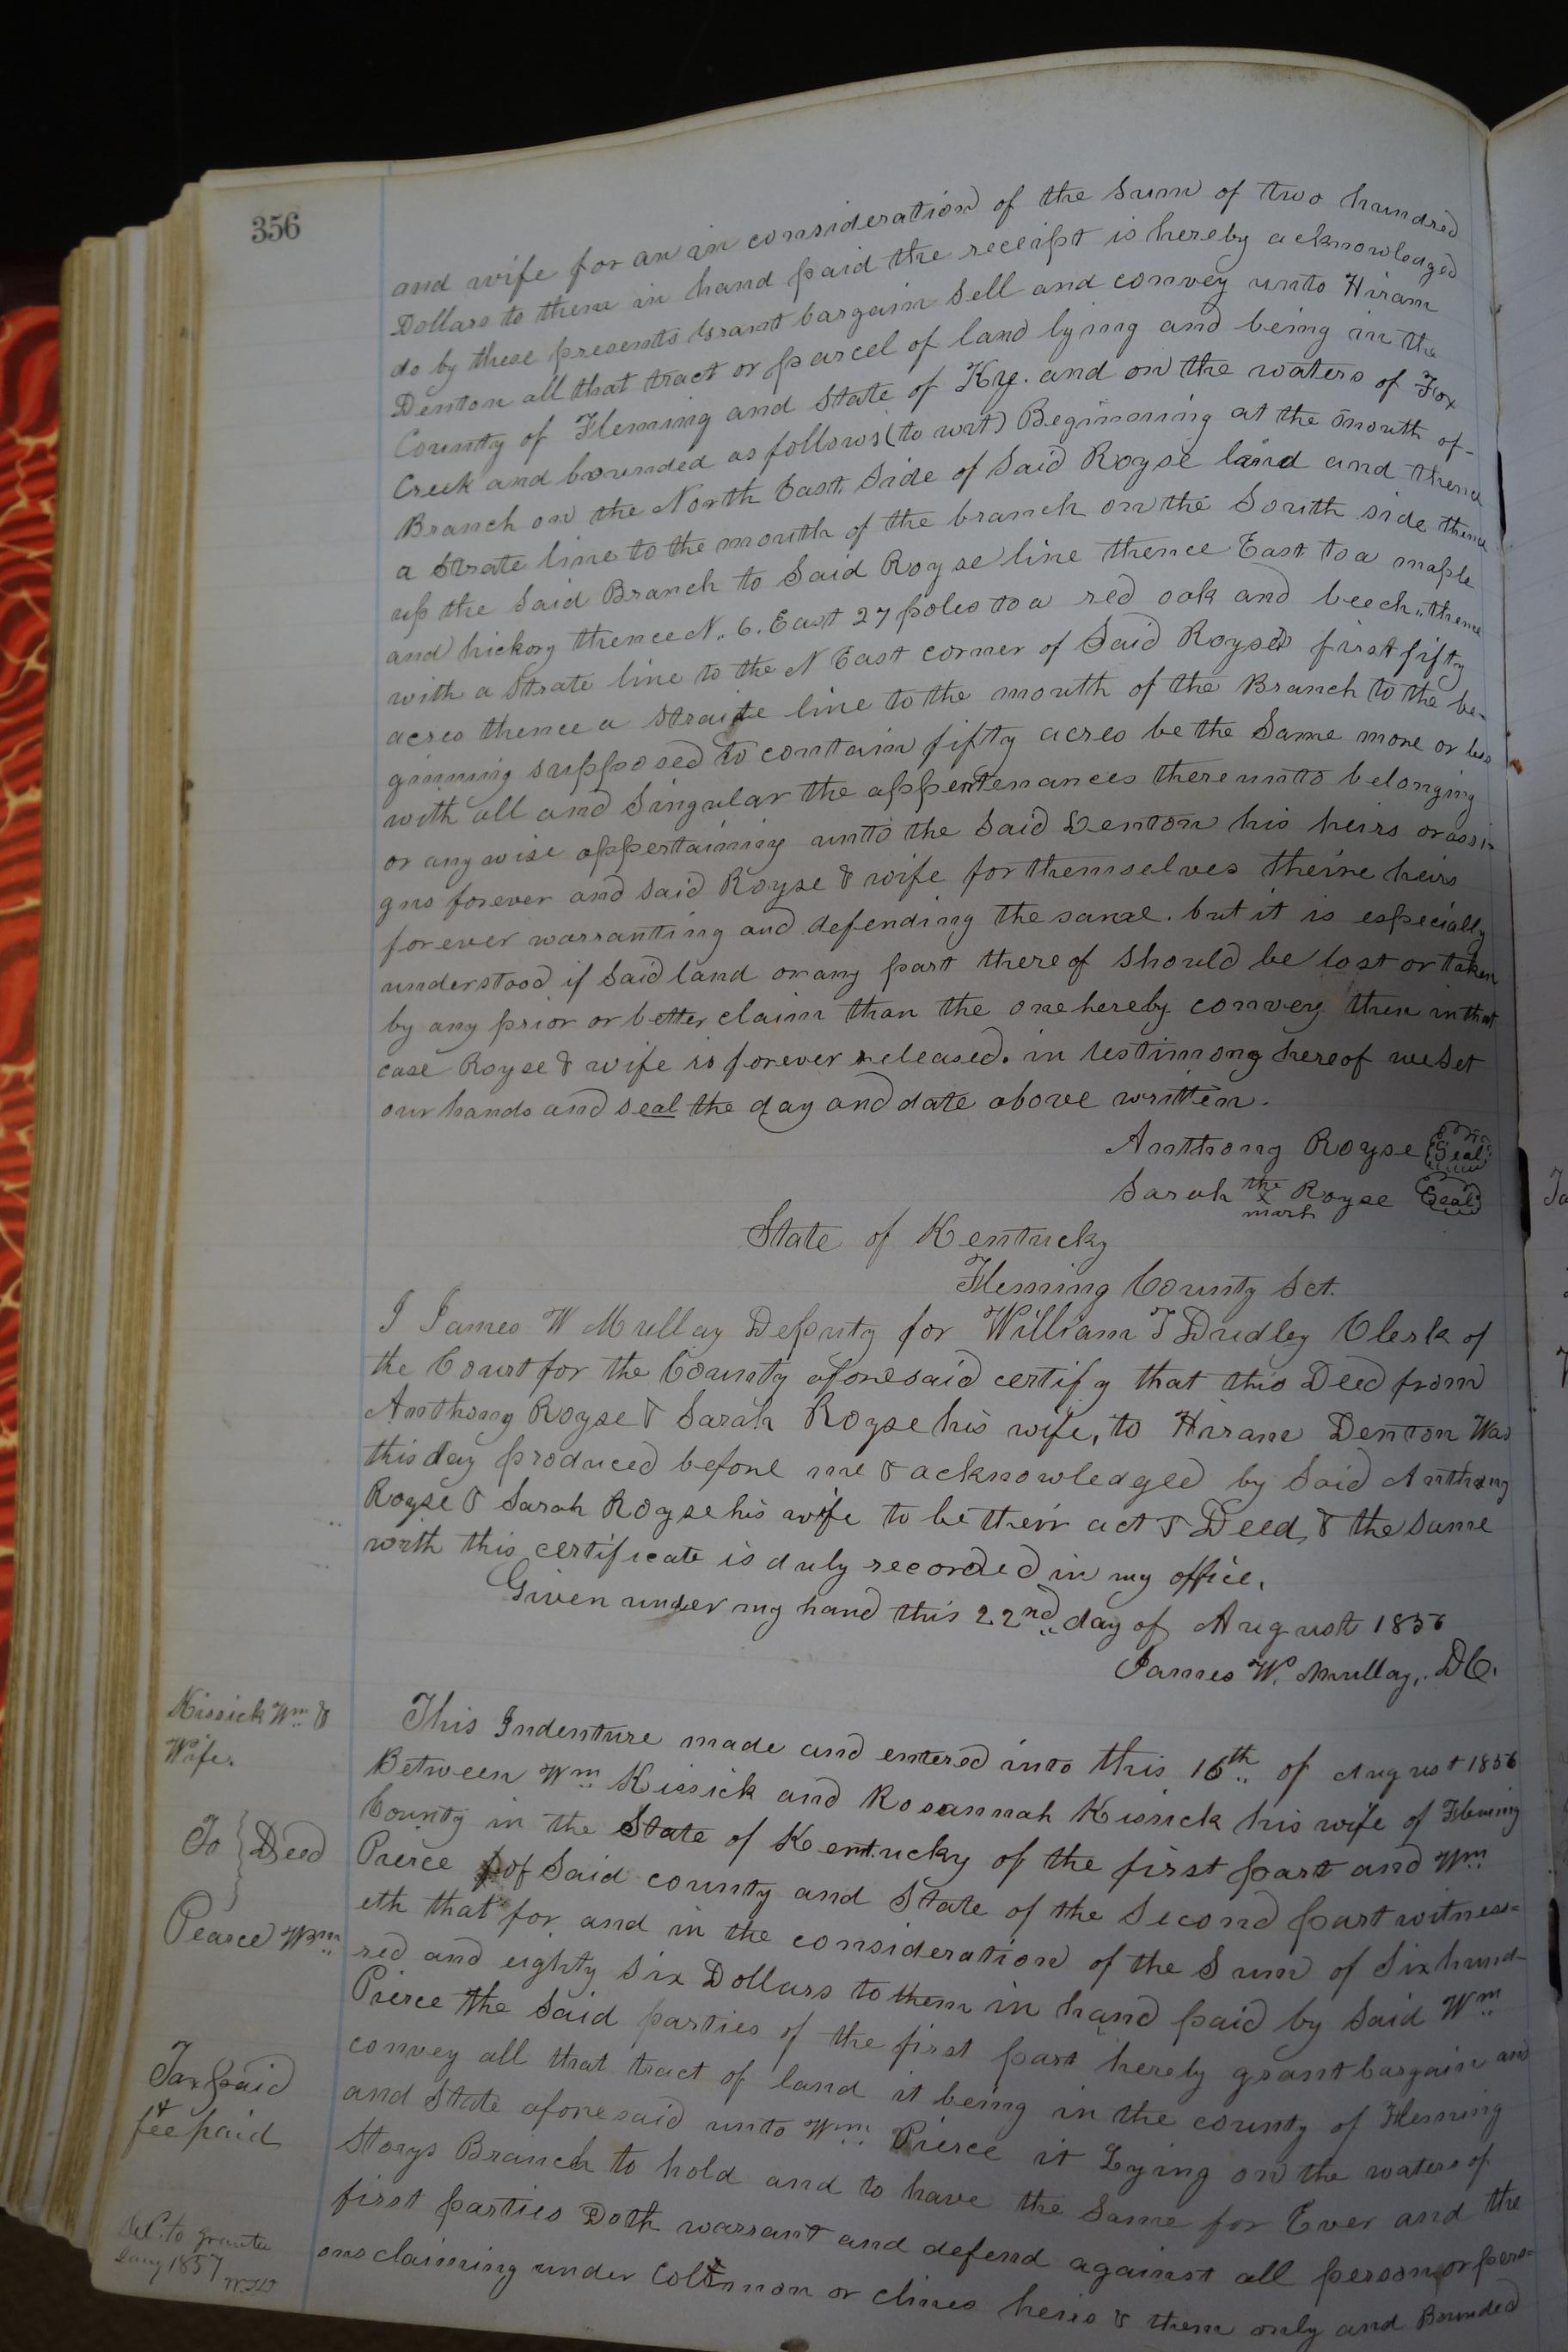 356
and wife for an in consideration of the Sum of two hundred
Dollars to them in hand paid the receipt is hereby acknowledged
do by these presents Grant bargain Sell and convey unto Hiram
Denton all that tract or parcel of land lying and being in the
County of Fleming and State of Ky. and on the waters of Fox
Creek and bounded as follows (to wit) Beginning at the mouth of
Branch on the North East Side of Said Royse land and thence
a Strate line to the mouth of the branch on the South side thence
up the Said Branch to Said Royse line thence East to a maple
and hickory thence N.. 6. East 27 poles to a red oak and beech.. thence
with a Strate line to the N East corner of Said Royses first fifty
acres thence a straite line to the mouth of the Branch to the be-
ginning supposed to contain fifty acres be the Same more or less
with all and Singular the appertenances thereunto belonging
or any wise appertaining unto the Said Denton his heirs or assi-
gns forever and said Royse & wife for themselves theire heirs
forever warranting and defending the same. but it is especially
understood if Said land or any part thereof should be lost or taken
by any prior or better claim than the one hereby convey then in that
case Royse & wife is forever released. in testimony hereof we Set
our hands and seal the day and date above written.
Anthony Royse (Seal)
Sarah the x mark Royse (Seal)
State of Kentucky
Fleming County Sct.
I James W Mullay Deputy for William T Dudley Clerk of
the Court for the County aforesaid certify that this Deed from
Anthony Royse & Sarah Royse his wife, to Hiram Denton Was
this day produced before me & acknowledged by Said Anthony
Royse & Sarah Royse his wife to be their act & Deed, & the Same
with this certificate is duly recorded in my office.
Given under my hand this 22nd day of August 1856
James W. Mullay, DC.
Kissick Wm &
Wife.
To } Deed
Pearce Wm
Tax paid
&
fee paid
Del. to grantee
1857
This Indenture made and entered into this 16th of August 1856
Between Wm Kissick and Rosannah Kissick his wife of Fleming
County in the State of Kentucky of the first part and Wm
Pierce of Said county and State of the Second part witness=
eth that for and in the consideration of the Sum of Six hund-
red and eighty Six Dollars to them in hand paid by Said Wm
Pierce the Said parties of the first part hereby grant bargain and
convey all that tract of land it being in the county of Fleming
and State aforesaid unto Wm Pierce it Lying on the waters of
Storys Branch to hold and to have the Same for Ever and the
first parties Doth warrant and defend against all person or pers=
ons claiming under or clines heris & them only and Bounded